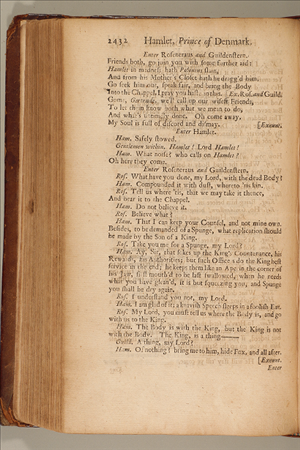 2432 Hamlet, Prince of Denmark.
Enter Rosencraus and Guildenstern.
Friends both, go join you with some further aid:
Hamlet in madness hath Polonius slain,
And from his Mother's Closet hath he dragg'd him.
Go seek him out, speak fair, and bring the Body
Into the Chappel. I pray you haste in this. Ex. Ros. and Guild.
Come, Gertrude, we'll call up our wisest Friends,
To let them know both what we mean to do,
And what's untimely done. Oh come away,
My Soul is full of discord and dismay. [Exeunt.
Enter Hamlet.
Ham. Safely stowed.
Gentlemen within. Hamlet! Lord Hamlet!
Ham. What noise? who calls on Hamlet?
Oh here they come.
Enter Rosencraus and Guildenstern.
Ros. What have you done, my Lord, with the dead Body?
Ham. Compounded it with dust, whereto 'tis kin.
Ros. Tell us where 'tis, that we may take it thence,
And bear it to the Chappel.
Ham. Do not believe it.
Ros. Believe what?
Ham. That I can keep your Counsel, and not mine own.
Besides, to be demanded of a Spunge, what replication should
be made by the Son of a King.
Ros. Take you me for a Spunge, my Lord?
Ham. Ay, Sir, that sokes up the King's Countenance, his
Rewards, his Authorities; but such Officers do the King best
service in the end; he keeps them like an Ape in the corner of
his Jaw, first mouth'd to be last swallowed, when he needs
what you have glean'd, it is but squeezing you, and Spunge
you shall be dry again.
Ros. I understand you not, my Lord.
Ham. I am glad of it; a knavish Speech sleeps in a foolish Ear.
Ros. My Lord, you must tell us where the Body is, and go
with us to the King.
Ham. The Body is with the King, but the King is not
with the Body. The King, is a thing——
Guild. A thing, my Lord?
Ham. Of nothing: bring me to him, hide Fox, and all after.
[Exeunt.
Enter